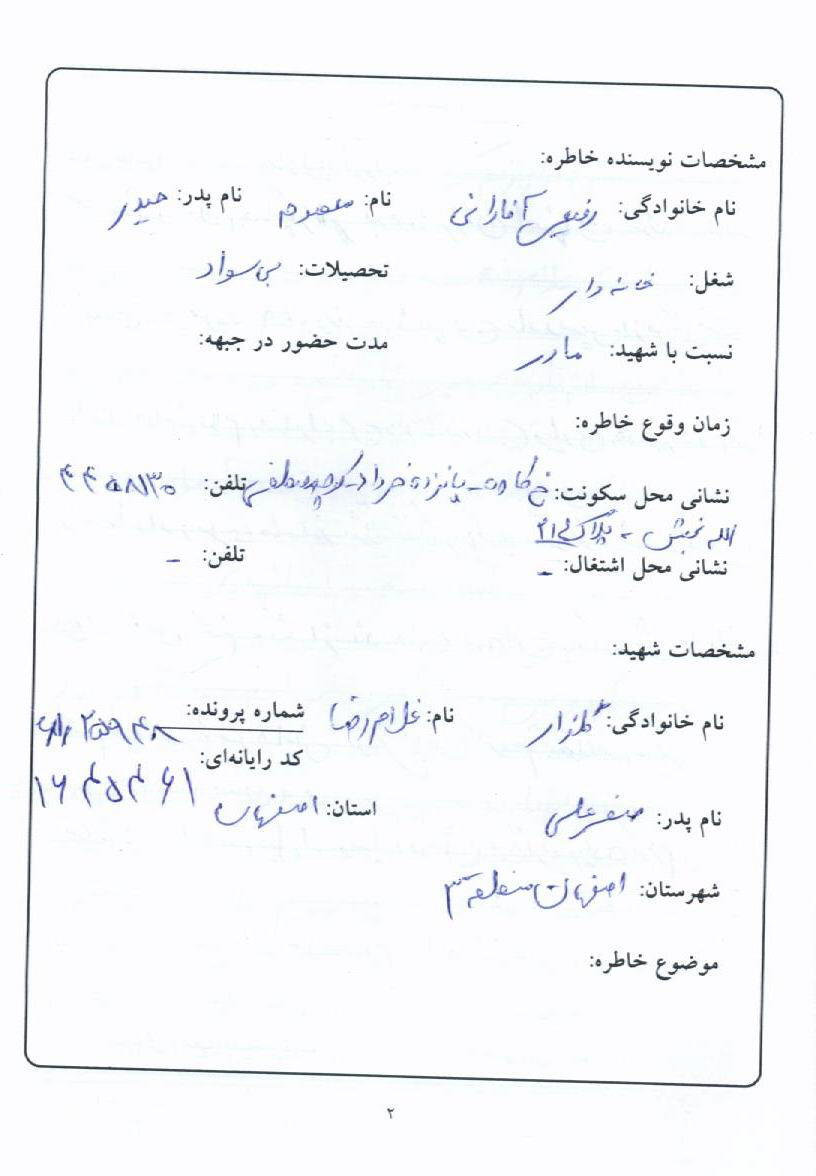 مشخصات نویسنده خاطره:
نام خانوادگی: رفیعی آفارانی نام: معصومه نام پدر: حیدر
شغل: خانه دار تحصیلات: بی سواد
نسبت با شهید: مادر مدت حضور در جبهه:
زمان وقوع خاطره:
نشانی محل سکونت: خ کاوه - پانزده خرداد - کوچه تلفن: ۴۴۵۸۱۳۰
الله بخش - پلاک ۲۱
نشانی محل اشتغال: - تلفن: -
مشخصات شهید:
نام خانوادگی: گلزار نام: غلامرضا شماره پرونده: ۲۵۹۴۸
کد رایانه‌ای: ۱۶۴۵۴۶۱
نام پدر: صفرعلی استان: اصفهان
شهرستان: اصفهان منطقه ۳
موضوع خاطره:
۲